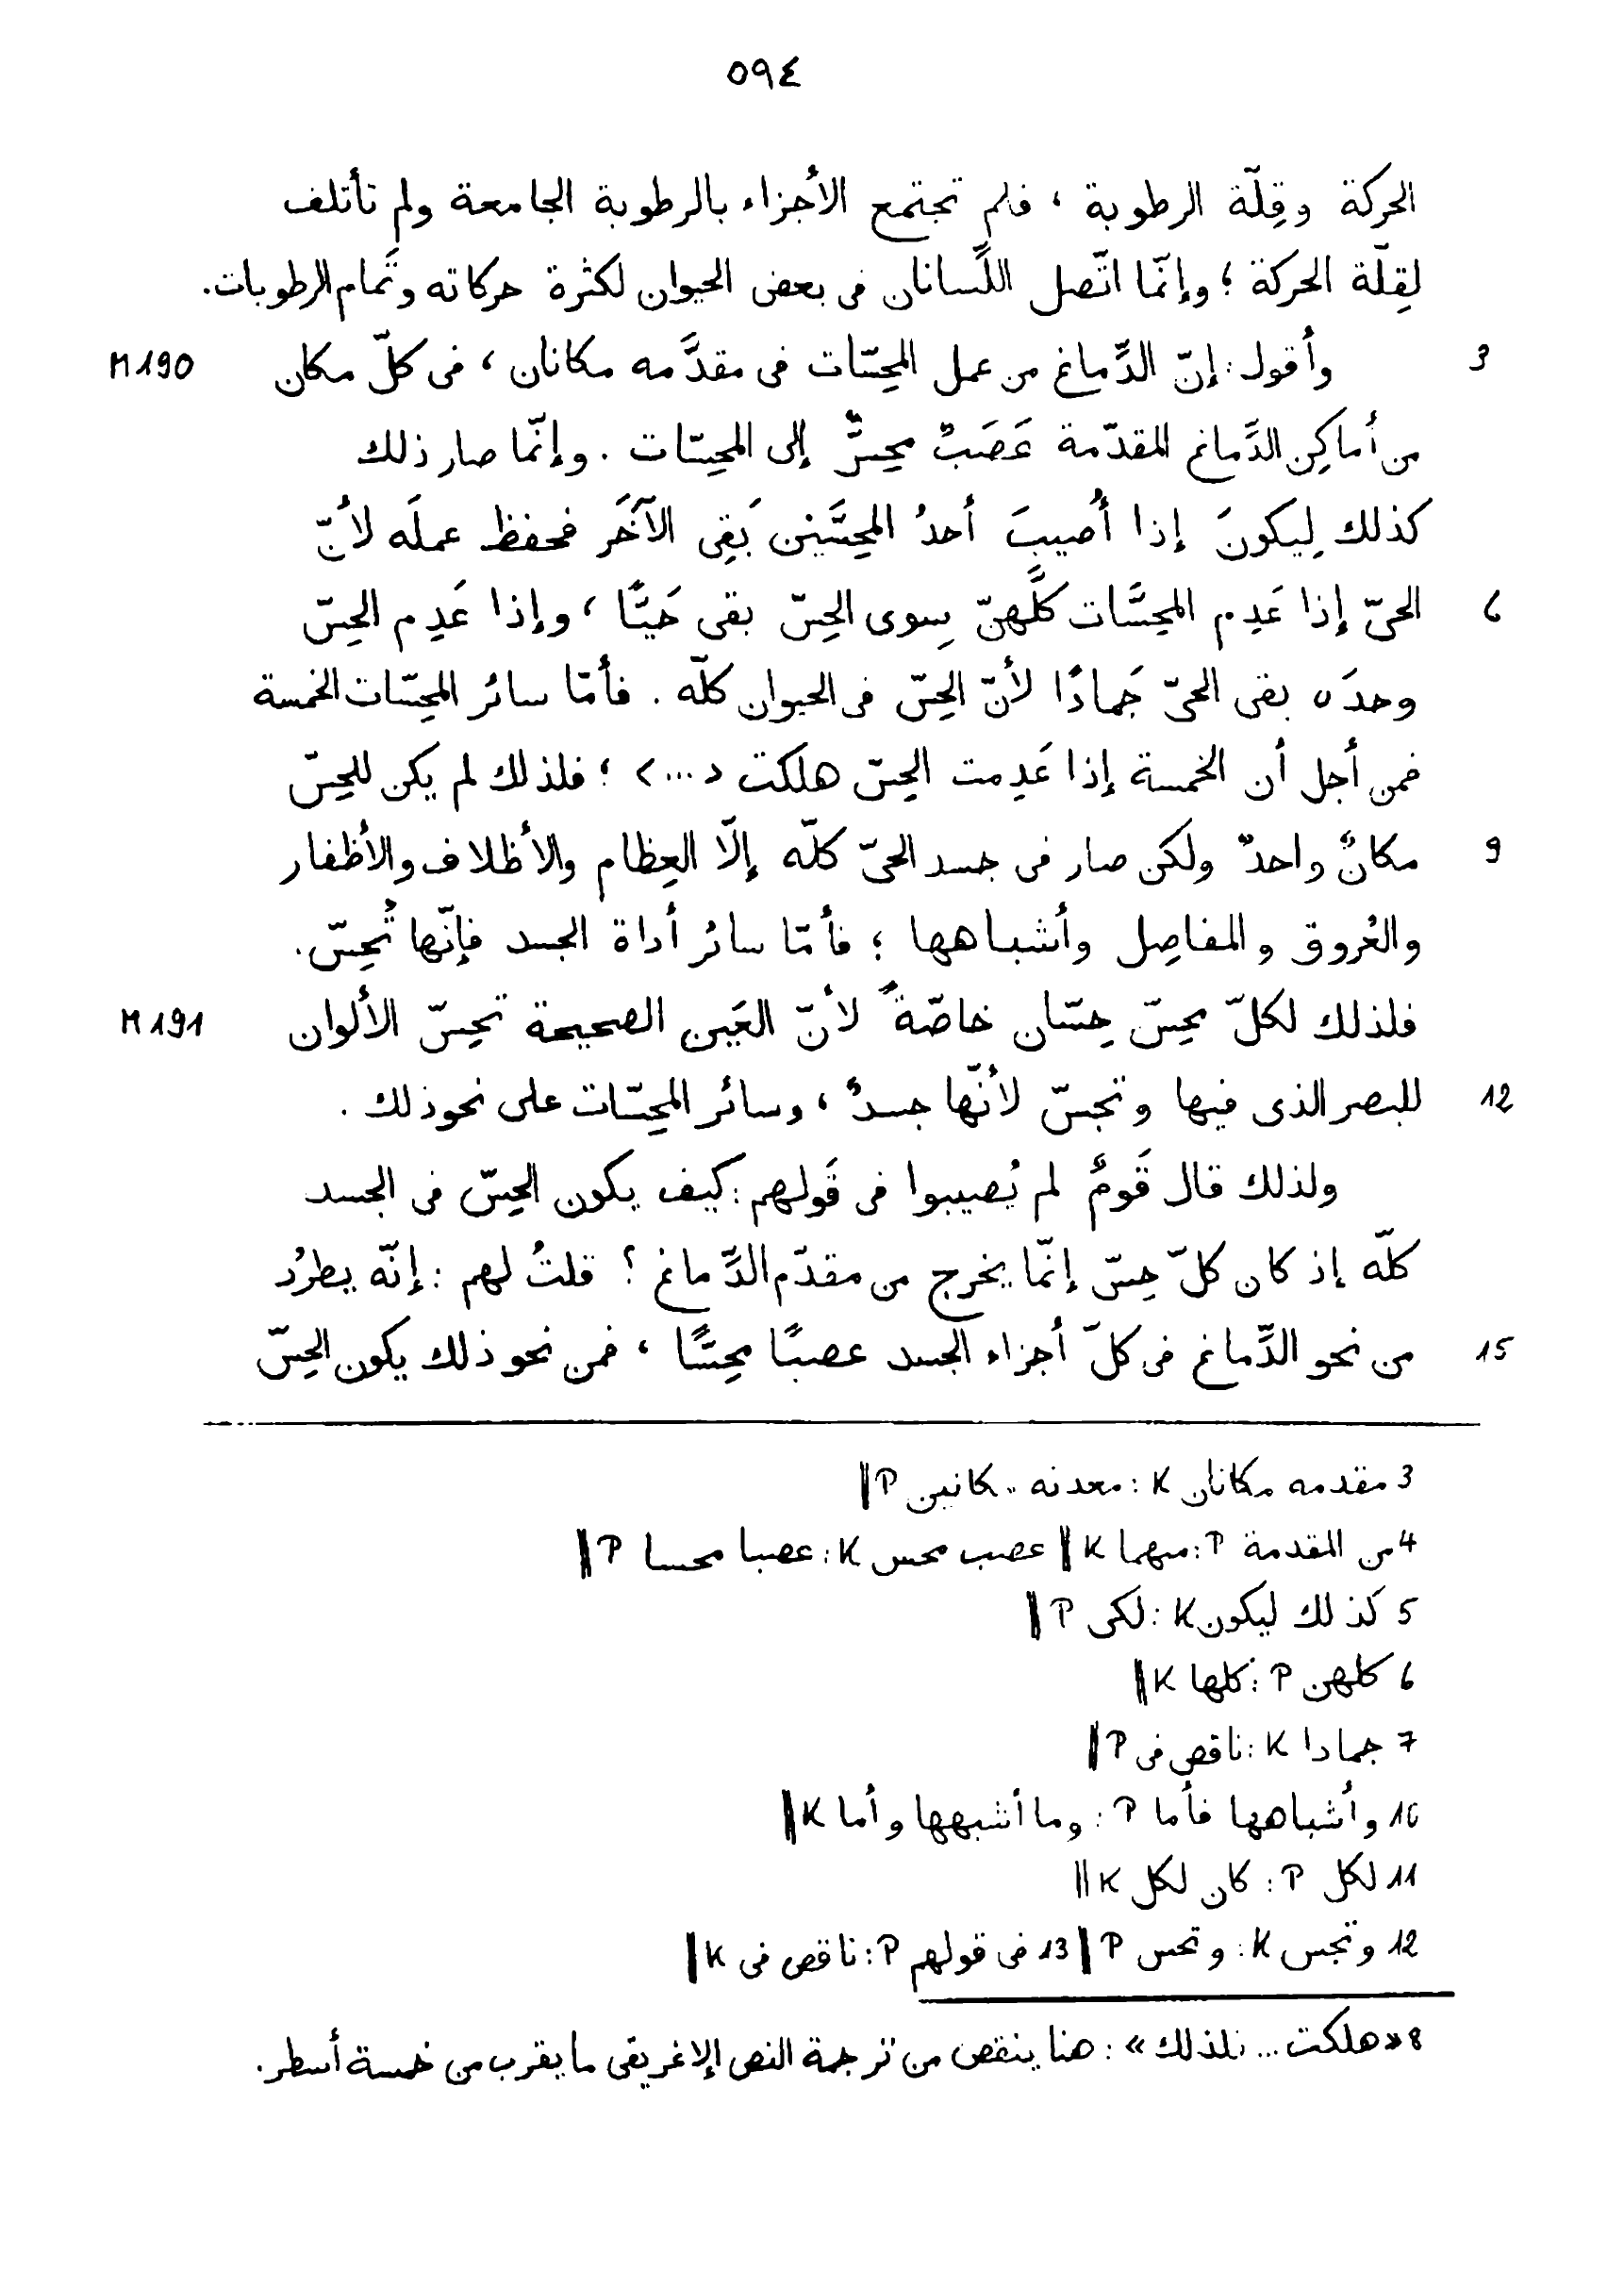 ٥٩٤
الحركة وقِلّة الرطوبة ، فلم تجتمع الأجزاء بالرطوبة الجامعة ولم تأتلف
لقِلّة الحركة ؛ وإنّما اتّصل اللِّسانان فى بعض الحيوان لكثرة حركاته وتَمام الرطوبات.
3 وأقول : إنّ الدِّماغ من عمل المحِسّات فى مقدَّمه مكانان ، فى كلّ مكان M 190
من أماكِن الدِّماغ المقدّمة عَصَبٌ محِسٌّ إلى المحِسّات . وإنّما صار ذلك
كذلك لِيكونَ إذا أُصيبَ أحدُ المحِسَّينِ بَقِى الآخَر فحفظ عملَه لأنّ
6 الحىّ إذا عَدِم المحِسَّات كلَّهنّ سِوى الحِسّ بقى حَيًّا ، وإذا عَدِم الحِسّ
وحدَه بقى الحىّ جَمادًا لأنّ الحِسّ فى الحيوان كلّه . فأمّا سائر المحِسّات الخمسة
فمن أجل أن الخمسة إذا عَدِمت الحِسّ هلكت <...> ؛ فلذلك لم يكن للحِسّ
9 مكانٌ واحدٌ ولكن صار فى جسد الحىّ كلّه إلّا العِظام والأظلاف والأظفار
والعُروق والمفاصِل وأشباهها ؛ فأمّا سائرُ أداة الجسد فإنّها تُحِسّ.
فلذلك لكلّ محِسّ حِسّان خاصّةً لأنّ العَين الصحيحة تحِسّ الألوان M 191
12 للبصر الذى فيها وتجسّ لأنّها جسدٌ ، وسائر المحِسّات على نحو ذلك .
ولذلك قال قَومٌ لم يُصيبوا فى قَولهم : كيف يكون الحِسّ فى الجسد
كلّه إذ كان كلّ حِسّ إنّما يخرج من مقدّم الدِّماغ ؟ قلتُ لهم : إنّه يطرُد
15 من نحو الدِّماغ فى كلّ أجزاء الجسد عصبًا محِسًّا ، فمن نحو ذلك يكون الحِسّ
3 مقدمه مكانان K : معدنه مكانين P ‖
4 من المقدمة P : منهما K ‖ عصب محس K : عصبا محسا P ‖
5 كذلك ليكون K : لكى P ‖
6 كلهن P : كلها K ‖
7 جمادا K : ناقص فى P ‖
10 وأشباهها فأما P : وما أشبهها وأما K ‖
11 لكل P : كان لكل K ‖
12 وتجس K : وتحس P ‖ 13 فى قولهم P : ناقص فى K ‖
8 «هلكت ... فلذلك» : هنا ينقص من ترجمة النص الإغريقى ما يقرب من خمسة أسطر.